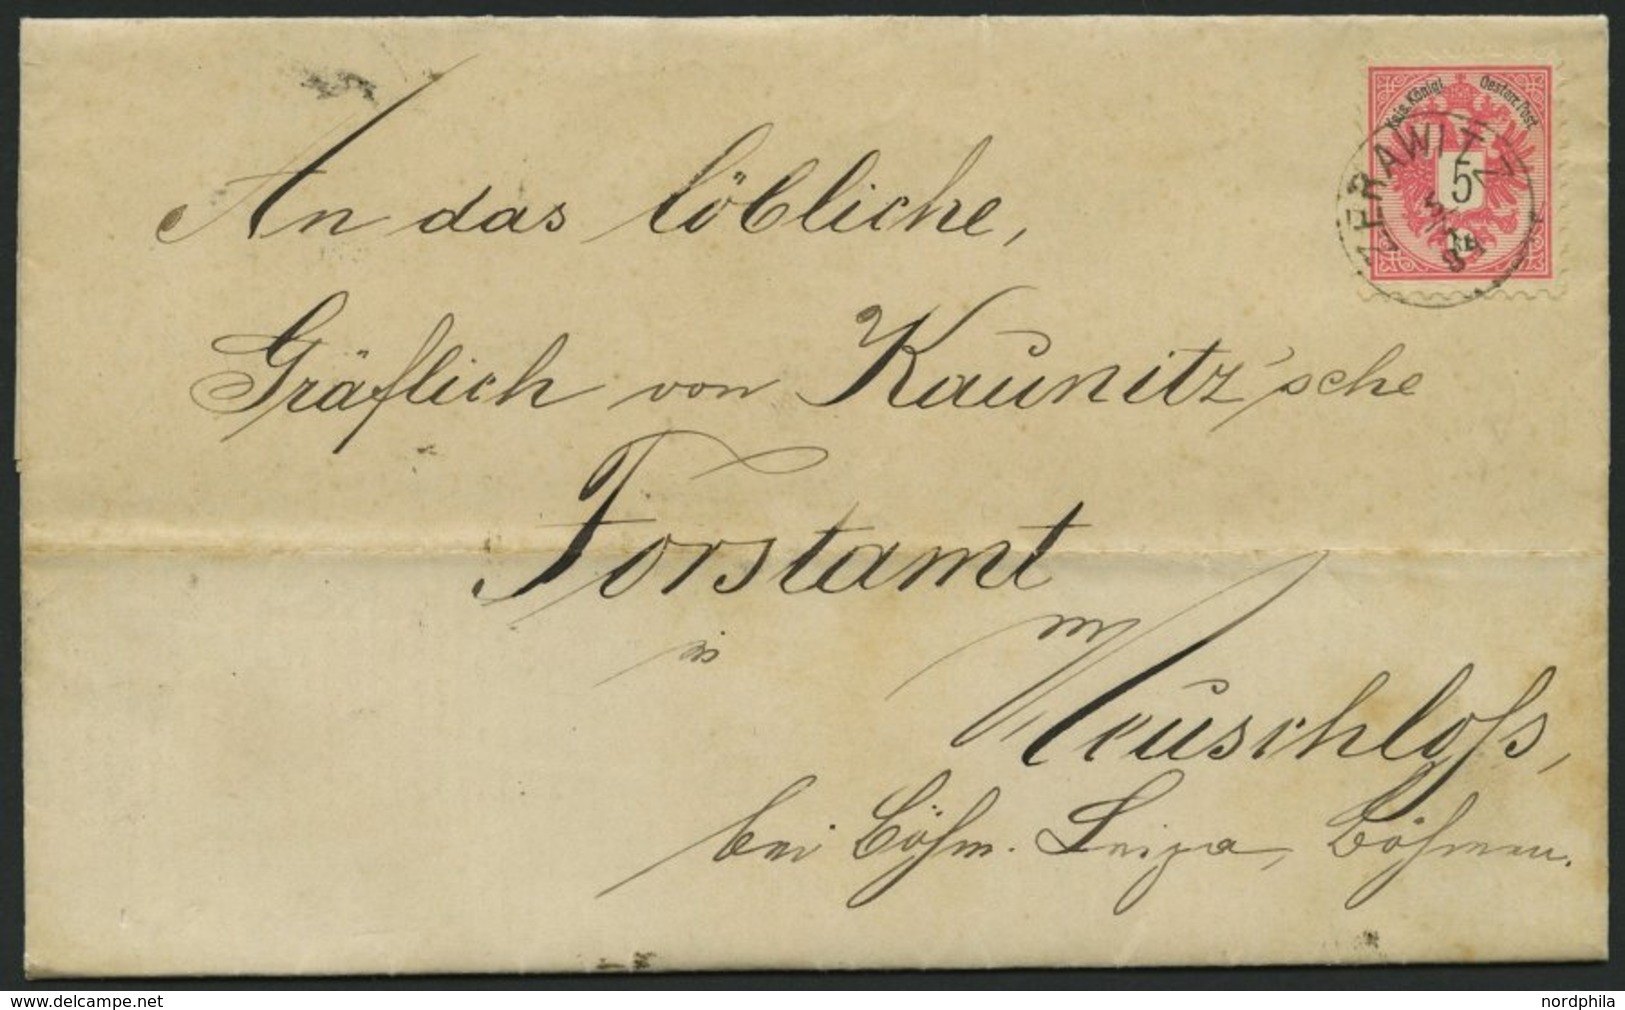 Kais. Königl. Oesterr. Post.
5
ZERAWITZ
An das löbliche,
Gräflich von Kaunitz'sche
Forstamt
in
Neuschloß,
bei Böhm. Leipa, Böhmen.
www.delcampe.net
nordphila